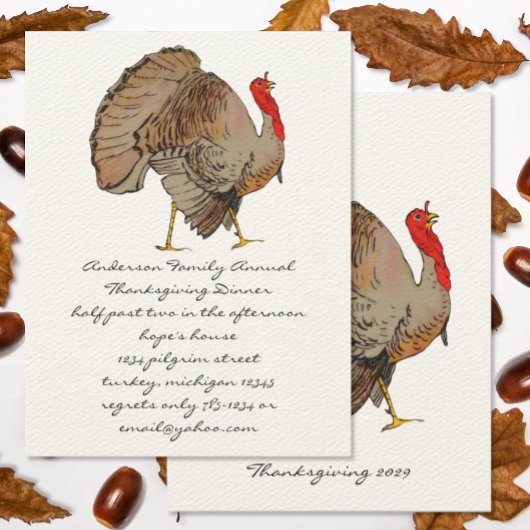 Anderson Family Annual
Thanksgiving Dinner
half past two in the afternoon
hope's house
1234 pilgrim street
turkey, michigan 12345
regrets only 785-1234 or
email@yahoo.com
Thanksgiving 2029